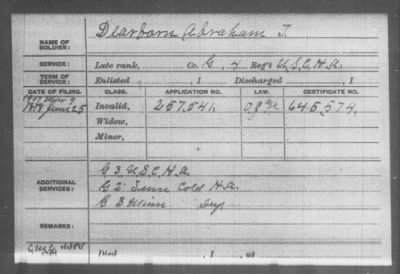 Dearborn Abraham T.
NAME OF SOLDIER:
SERVICE: Late rank, Co. G, 4 Reg't U.S.C.H.A.
TERM OF SERVICE: Enlisted , 1 Discharged , 1
DATE OF FILING. CLASS. APPLICATION NO. LAW. CERTIFICATE NO.
1878 June 25 Invalid, 257,541, 645,574,
Widow,
Minor,
G 3, U.S.C.H.A.
ADDITIONAL SERVICES: G 2" Tenn Cold H.A.
G 3 Minn Inf
REMARKS:
Died , 1 , at